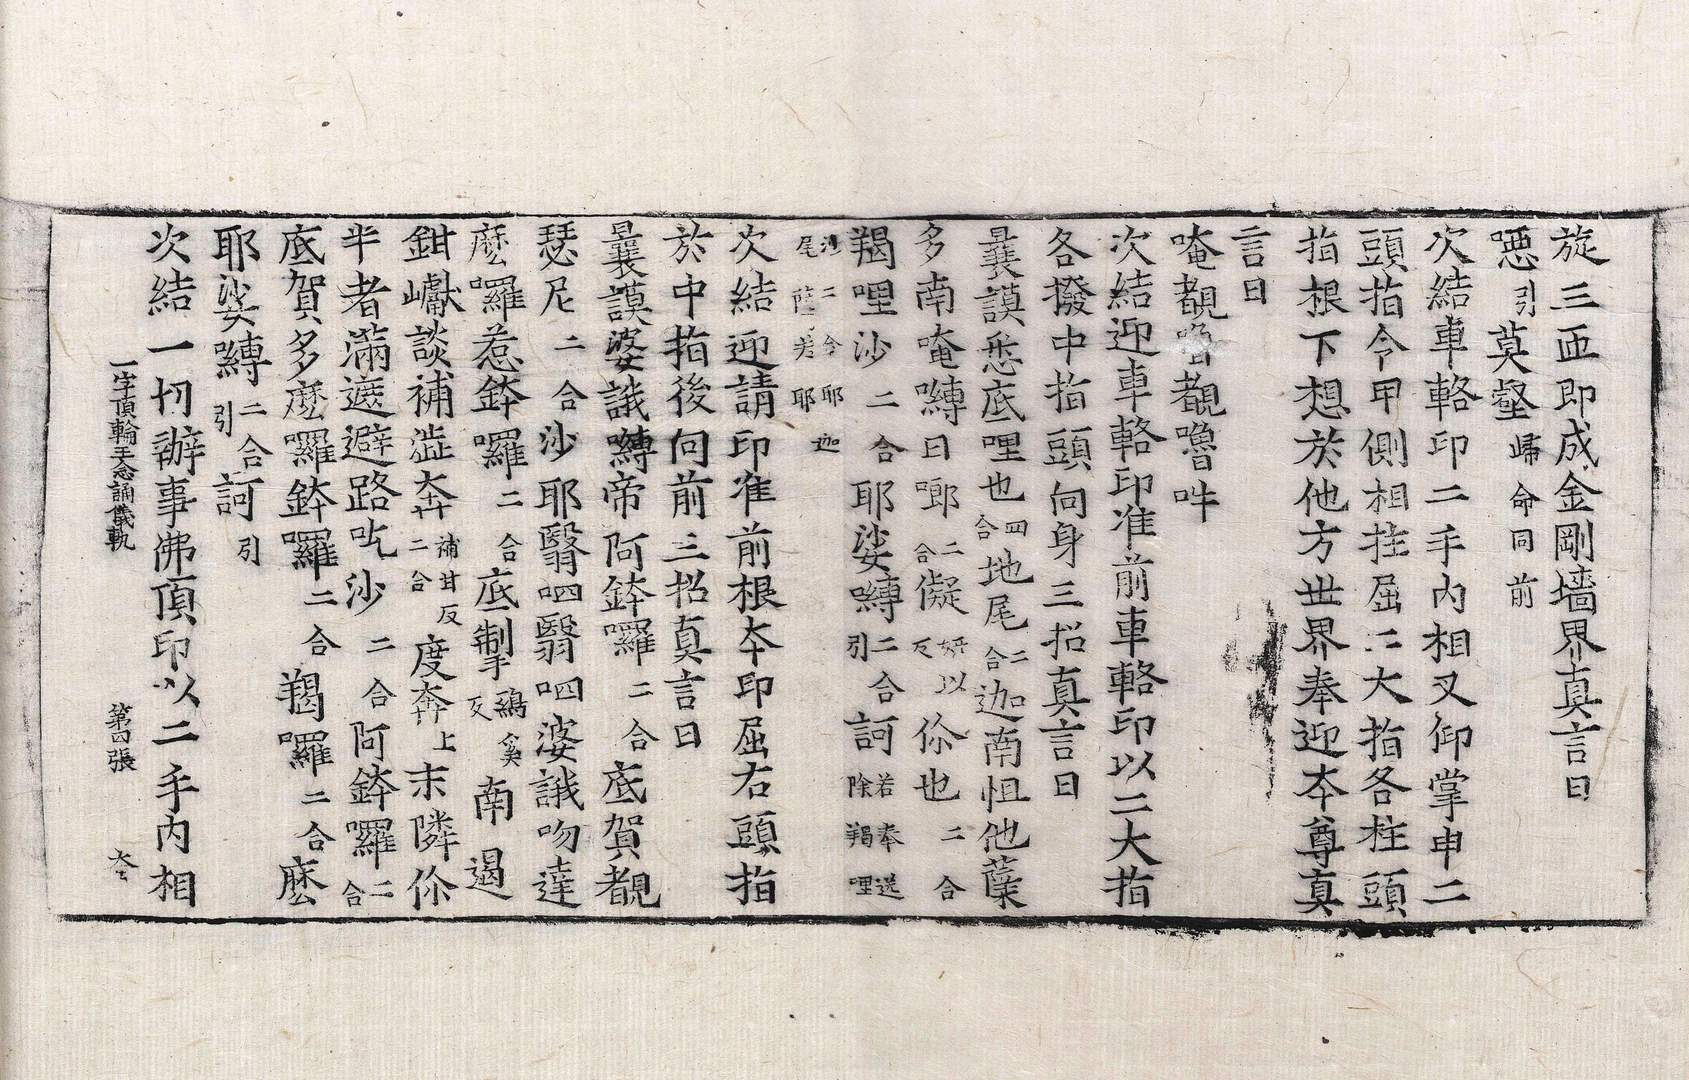 旋三帀即成金剛墻界真言曰
噁引莫壑歸命同前
次結車輅印二手內相叉仰掌申二
頭指令甲側相拄屈二大指各柱頭
指根下想於他方世界奉迎本尊真
言曰
唵覩嚕覩嚕吽
次結迎車輅印准前車輅印以二大指
各撥中指頭向身三招真言曰
曩謨悉底哩也四合地尾二合迦南怛他蘖
多南唵嚩日囉二合儗妍以反你也二合
羯哩沙二合耶娑嚩二合引訶若奉送除羯哩
沙二合耶迦尾薩羌耶
次結迎請印准前根本印屈右頭指
於中指後向前三招真言曰
曩謨婆誐嚩帝阿鉢囉二合底賀覩
瑟尼二合沙耶翳呬翳呬婆誐吻達
麽囉惹鉢囉二合底掣鷄奚反南遏
鉗巘談補澁奔補甘反二合度奔上末隣你
半者滿遮避路吃沙二合阿鉢囉二合
底賀多麽囉鉢囉二合羯囉二合麽
耶娑嚩二合引訶引
次結一切辦事佛頂印以二手內相
一字頂輪王念誦儀軌 第四張